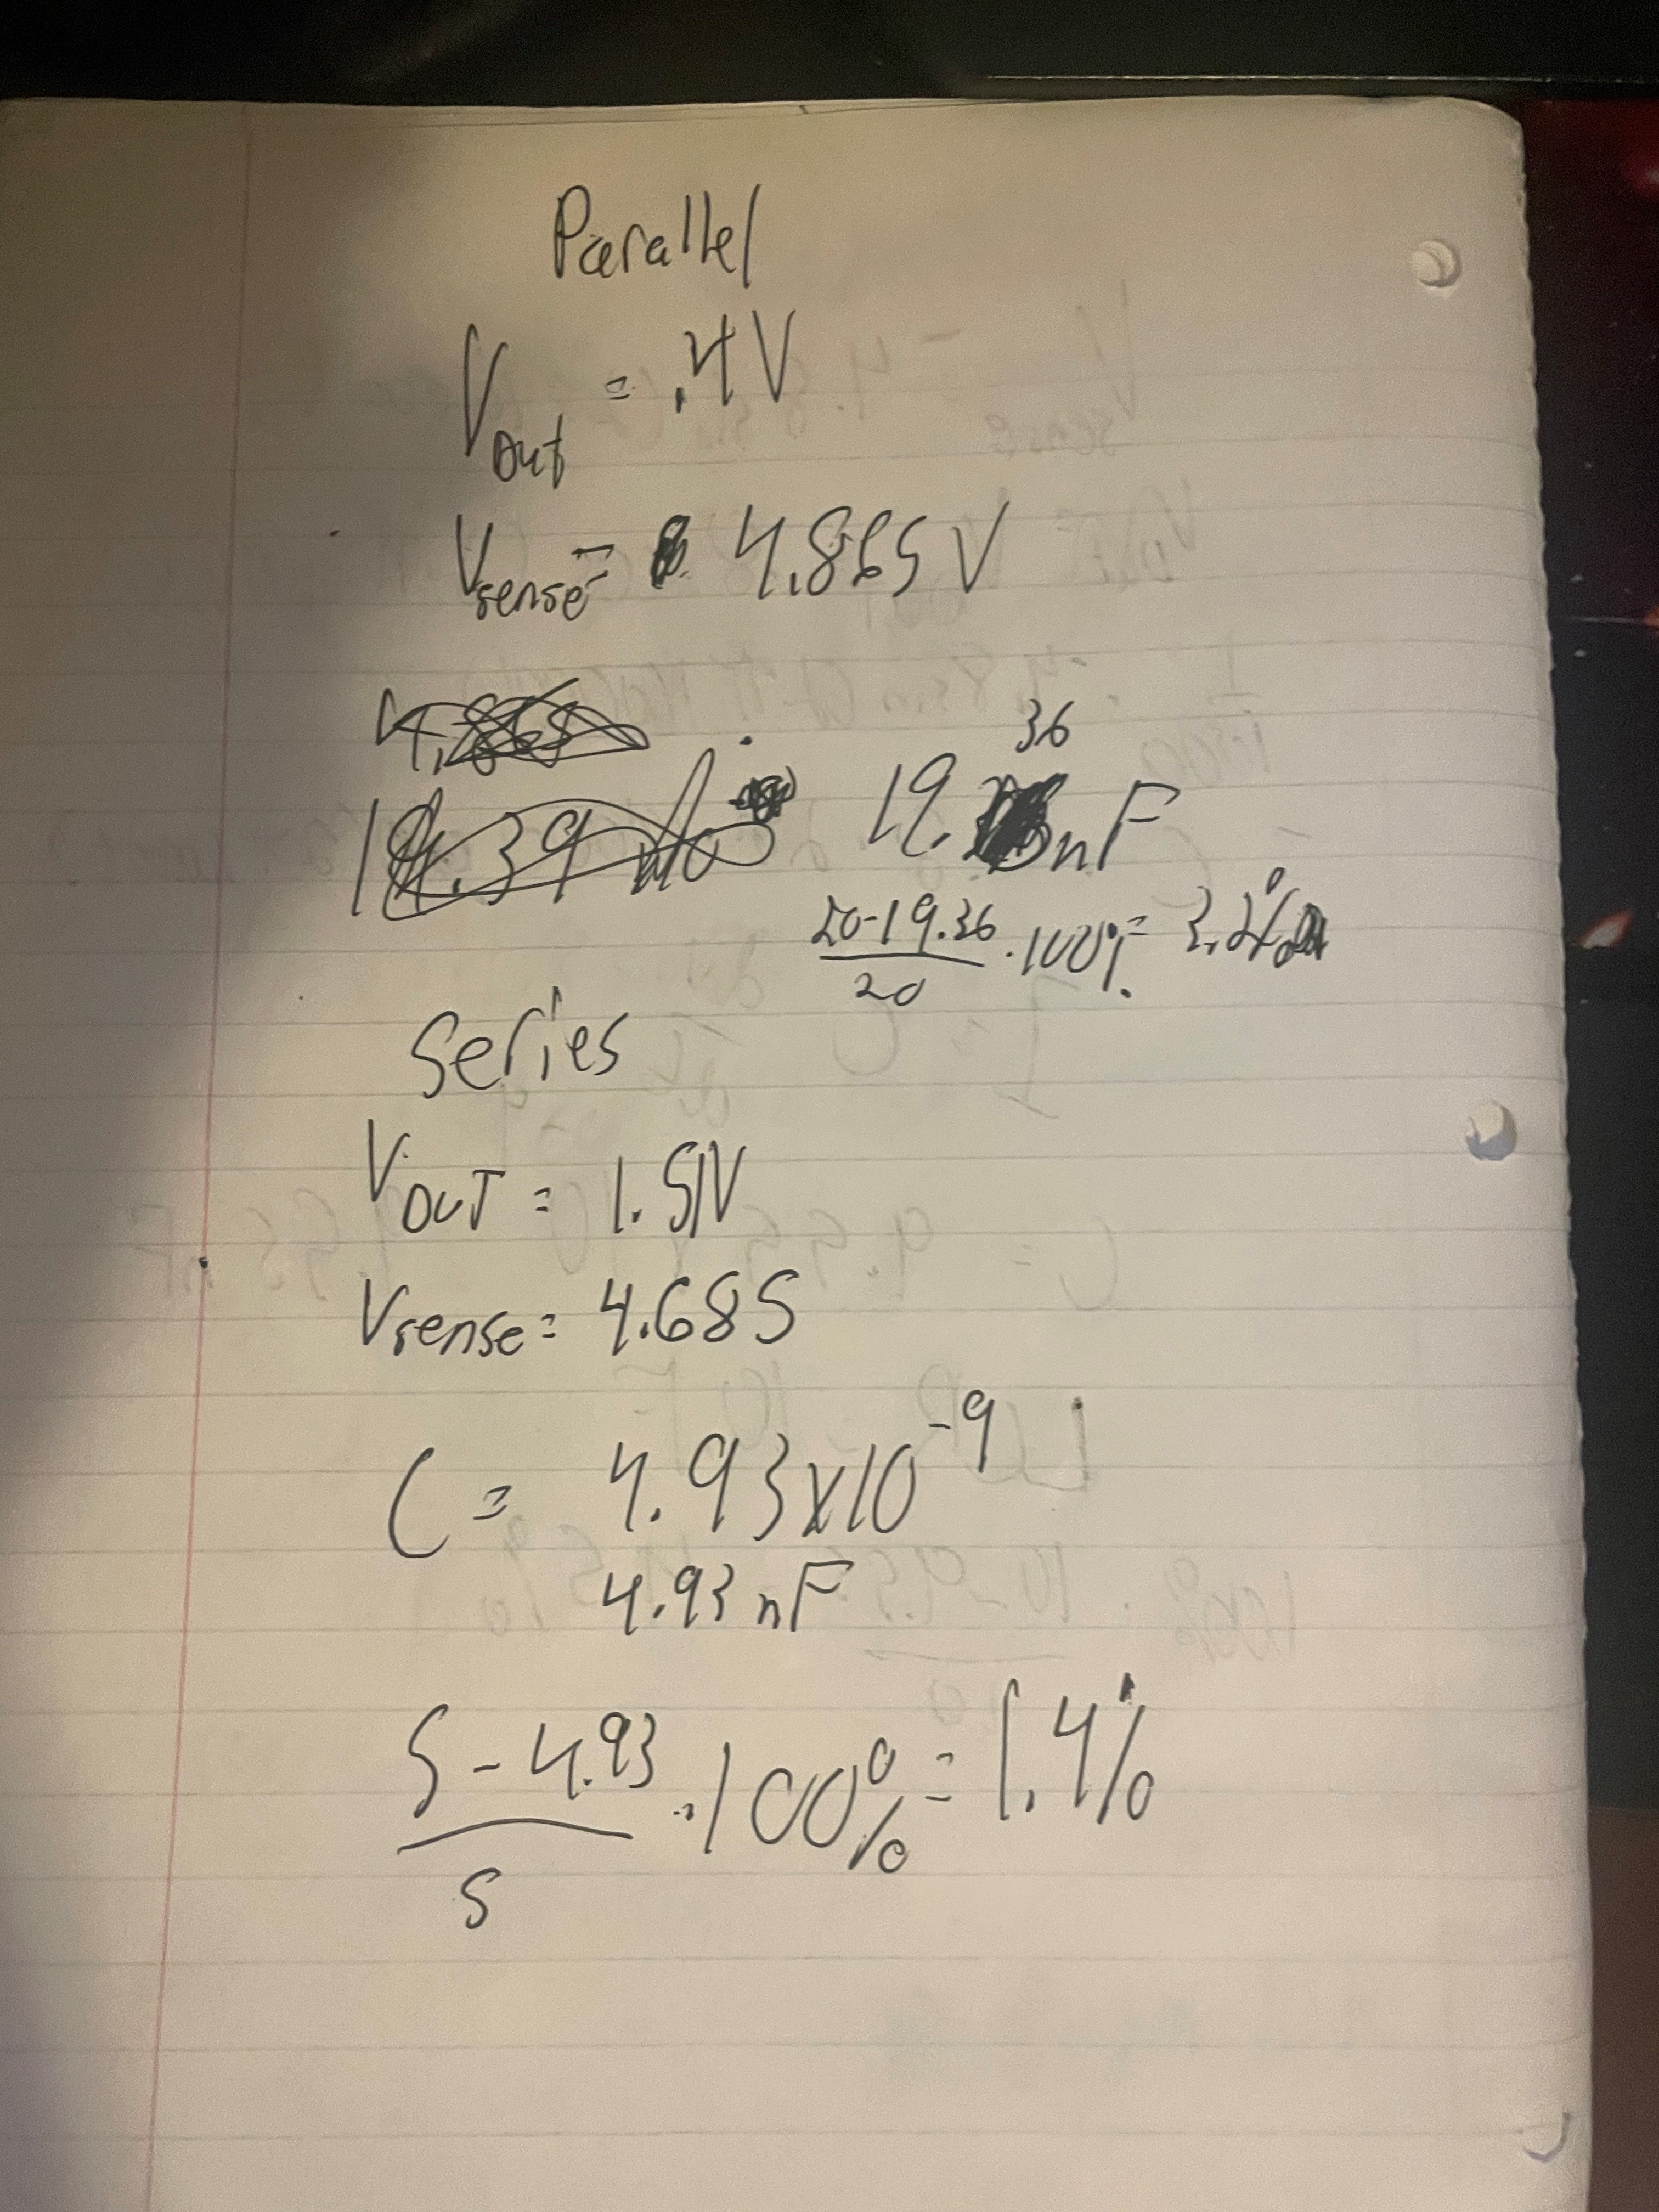 Parallel
Vout = .4V
Vsense = 4.865V
19.36nF
20-19.36/20 · 100% = 3.2%
Series
VOUT = 1.51V
Vsense = 4.685
C = 4.93x10^-9
4.93nF
5-4.93/5 · 100% = 1.4%